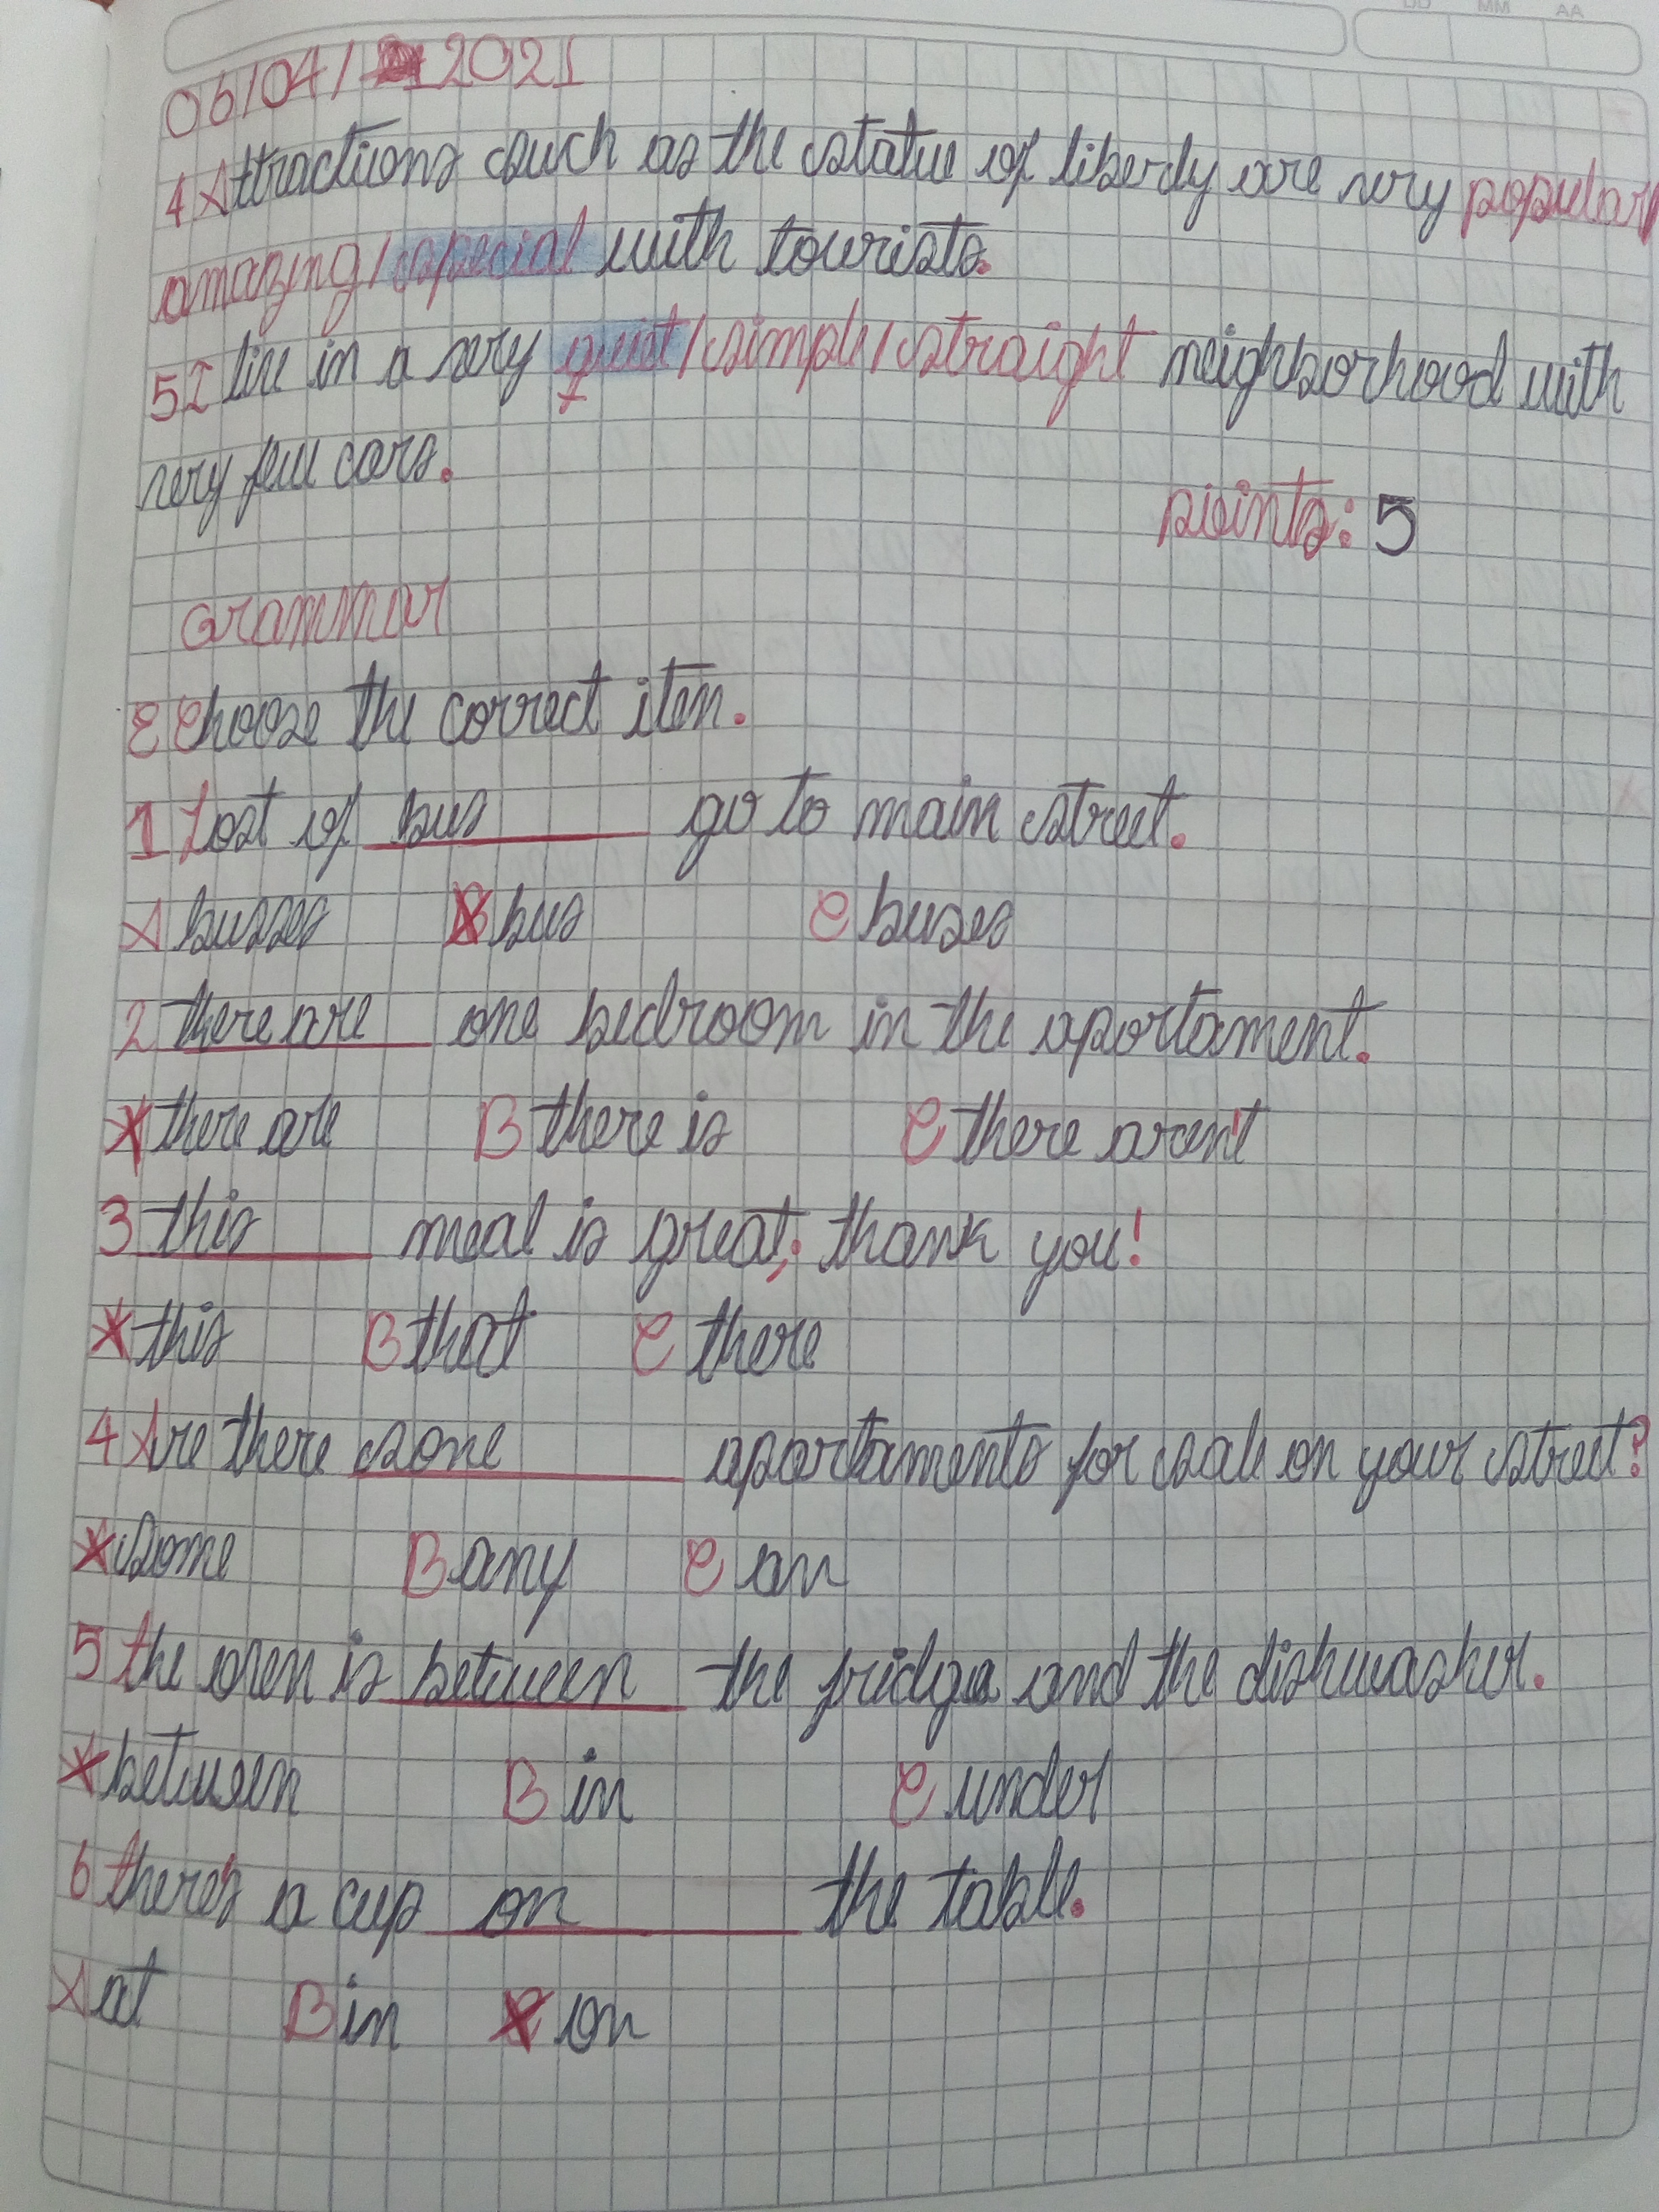 DD MM AA
06/04/ 2021
4 Attractions such as the statue of liberdy are very popular/
amazing/special with tourists.
5 I live in a very quiet/simple/straight neighborhood with
very few cars.
points: 5
Grammar
E choose the correct iten.
1 Lost of bus go to main street.
A busses B bus C buses
2 there are one bedroom in the aportament.
A there are B there is C there aren't
3 this meal is great, thank you!
A this B that C there
4 Are there sone aportaments for sale on your street?
A some B any C an
5 the oven is between the fridge and the dishwasher.
A between B in C under
6 there's a cup on the table.
A at B in C on